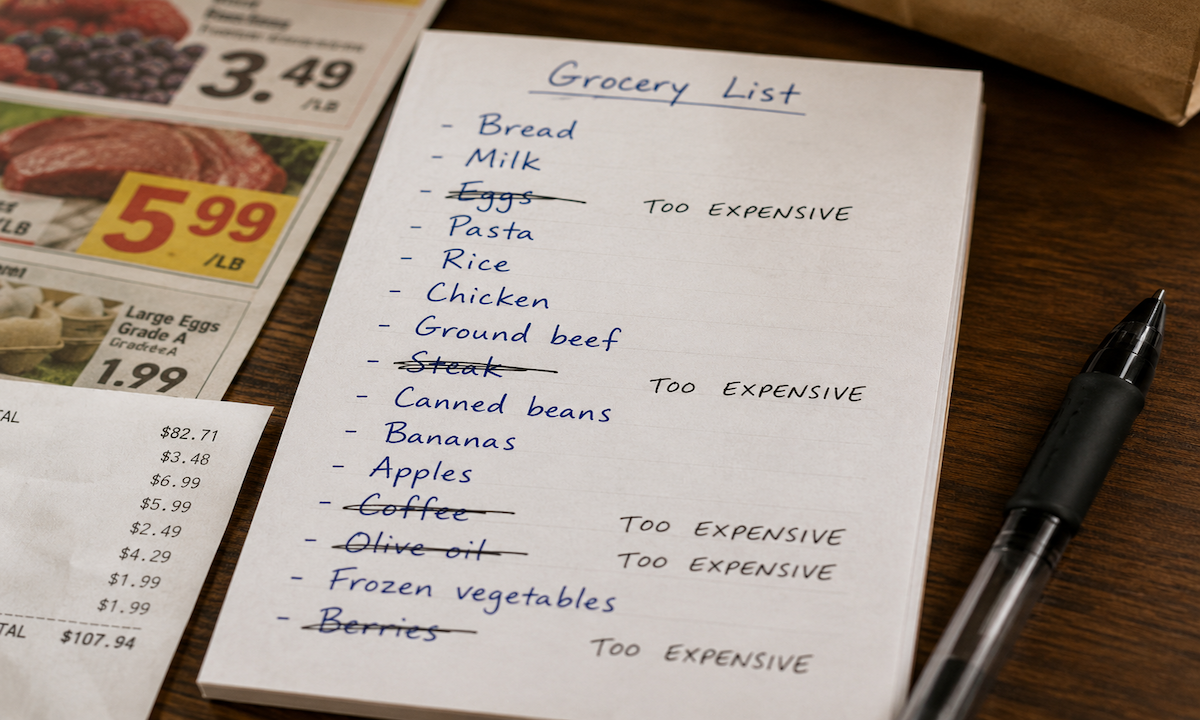 3.49
/LB
5.99
/LB
/LB
Large Eggs
Grade A
1.99
Grocery List
- Bread
- Milk
- Eggs TOO EXPENSIVE
- Pasta
- Rice
- Chicken
- Ground beef
- Steak TOO EXPENSIVE
- Canned beans
- Bananas
- Apples
- Coffee TOO EXPENSIVE
- Olive oil TOO EXPENSIVE
- Frozen vegetables
- Berries TOO EXPENSIVE
$82.71
$3.48
$6.99
$5.99
$2.49
$4.29
$1.99
$1.99
$107.94